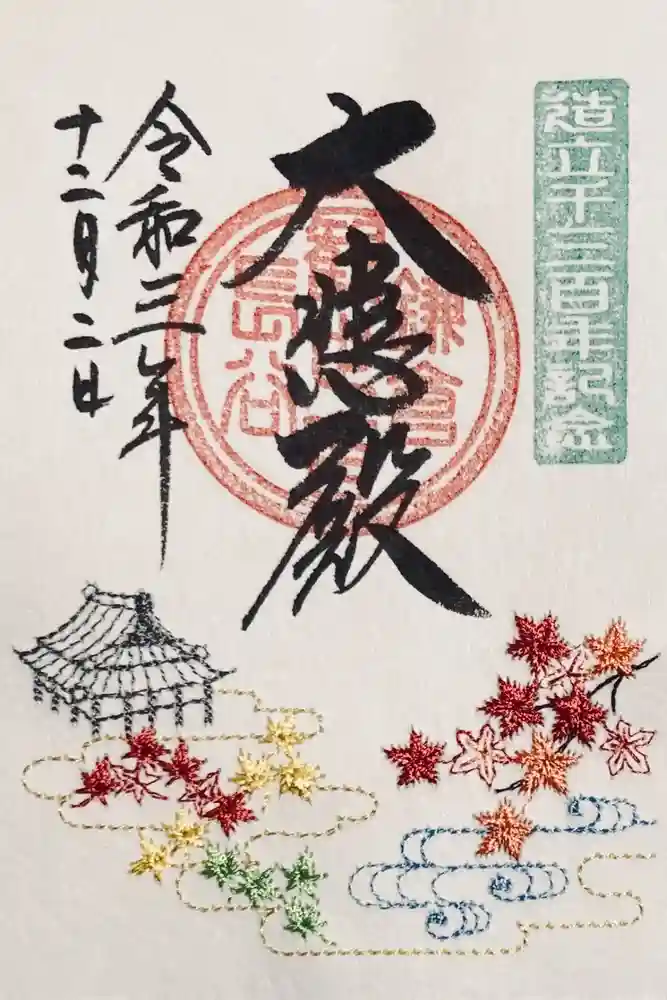 造立千三百年記念
大悲殿
鎌倉
長谷
令和三年
十二月二日